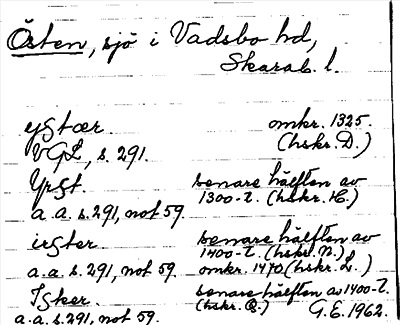 Östen, sjö i Vadsbo hd,
Skarab. l.
ystær. omkr. 1325.
VGL, s. 291. (hskr. D.)
Yrst. senare hälften av
a.a. s. 291, not 59. 1300-t. (hskr. H.)
irster. senare hälften av
1400-t. (hskr. N.)
a.a. s. 291, not 59. omkr. 1470 (hskr. L.)
Isker. senare hälften av 1400-t.
a.a. s. 291, not 59. (hskr. Q.) G.E. 1962.